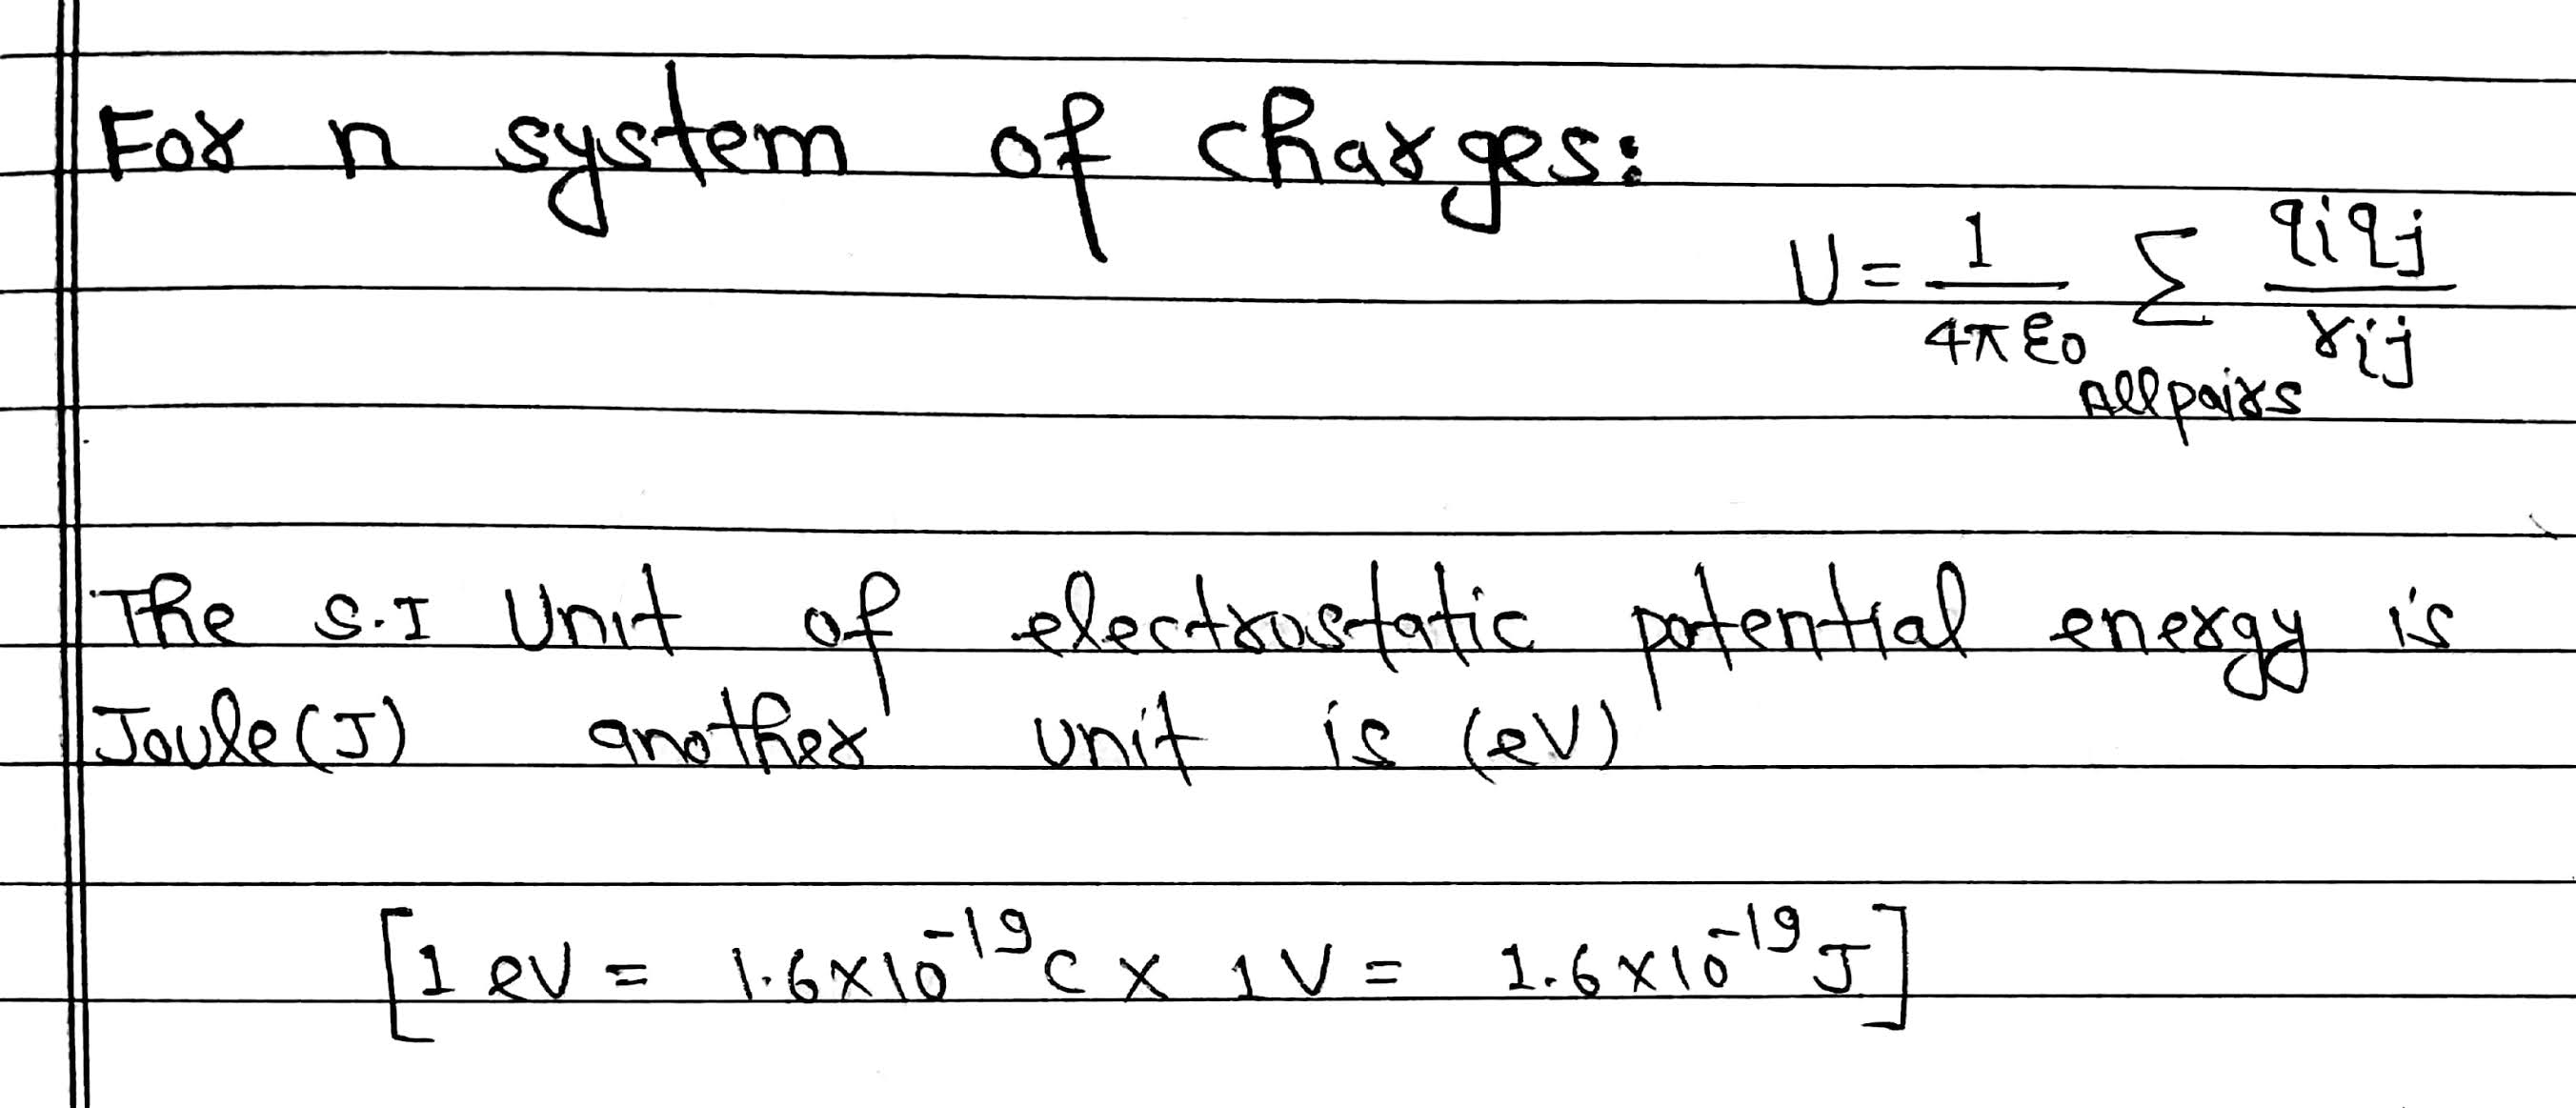 For n system of charges:
U = 1/4πε0 Σ All pairs qiqj/rij
The S.I Unit of electrostatic potential energy is
Joule(J) another unit is (eV)
[1 eV = 1.6×10^-19 C × 1V = 1.6×10^-19 J]